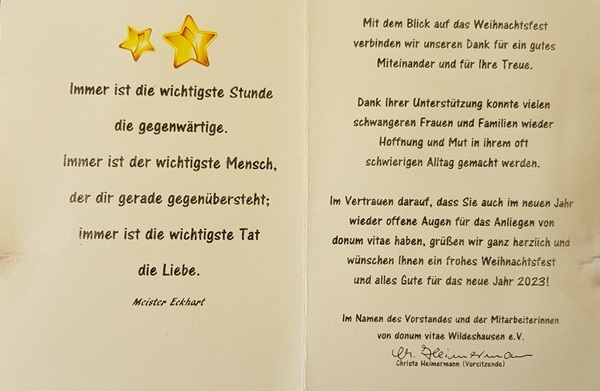 Immer ist die wichtigste Stunde
die gegenwärtige.
Immer ist der wichtigste Mensch,
der dir gerade gegenübersteht;
immer ist die wichtigste Tat
die Liebe.
Meister Eckhart
Mit dem Blick auf das Weihnachtsfest
verbinden wir unseren Dank für ein gutes
Miteinander und für Ihre Treue.
Dank Ihrer Unterstützung konnte vielen
schwangeren Frauen und Familien wieder
Hoffnung und Mut in ihrem oft
schwierigen Alltag gemacht werden.
Im Vertrauen darauf, dass Sie auch im neuen Jahr
wieder offene Augen für das Anliegen von
donum vitae haben, grüßen wir ganz herzlich und
wünschen Ihnen ein frohes Weihnachtsfest
und alles Gute für das neue Jahr 2023!
Im Namen des Vorstandes und der Mitarbeiterinnen
von donum vitae Wildeshausen e.V.
Ch. Heimermann
Christa Heimermann (Vorsitzende)